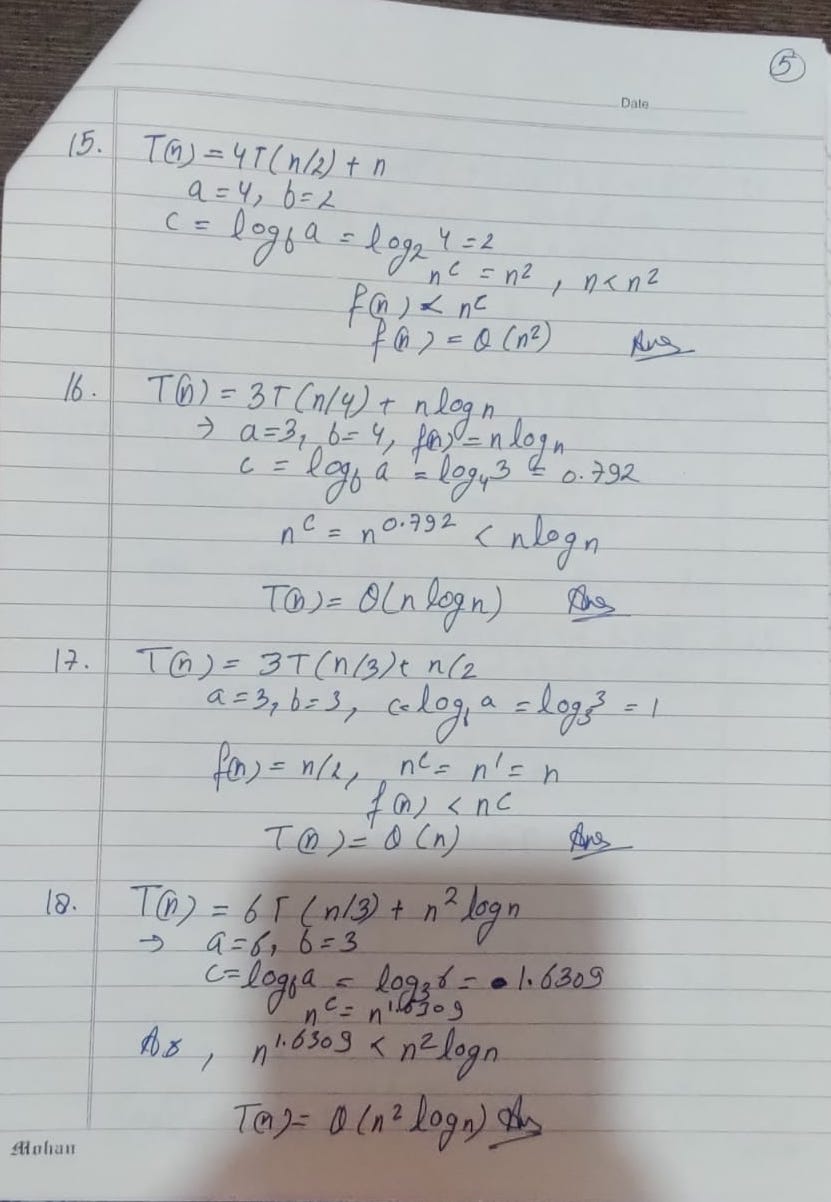 5
Date
15. T(n) = 4T(n/2) + n
a = 4, b = 2
c = log_b a = log_2 4 = 2
n^c = n^2 , n < n^2
f(n) < n^c
f(n) = θ(n^2) Ans
16. T(n) = 3T(n/4) + n log n
→ a = 3, b = 4, f(n) = n log n
c = log_b a = log_4 3 = 0.792
n^c = n^0.792 < n log n
T(n) = θ(n log n) Ans
17. T(n) = 3T(n/3) + n/2
a = 3, b = 3, c = log_b a = log_3 3 = 1
f(n) = n/2, n^c = n^1 = n
f(n) < n^c
T(n) = θ(n) Ans
18. T(n) = 6T(n/3) + n^2 log n
→ a = 6, b = 3
c = log_b a = log_3 6 = 1.6309
n^c = n^1.6309
As , n^1.6309 < n^2 log n
T(n) = θ(n^2 log n) Ans
Mohan